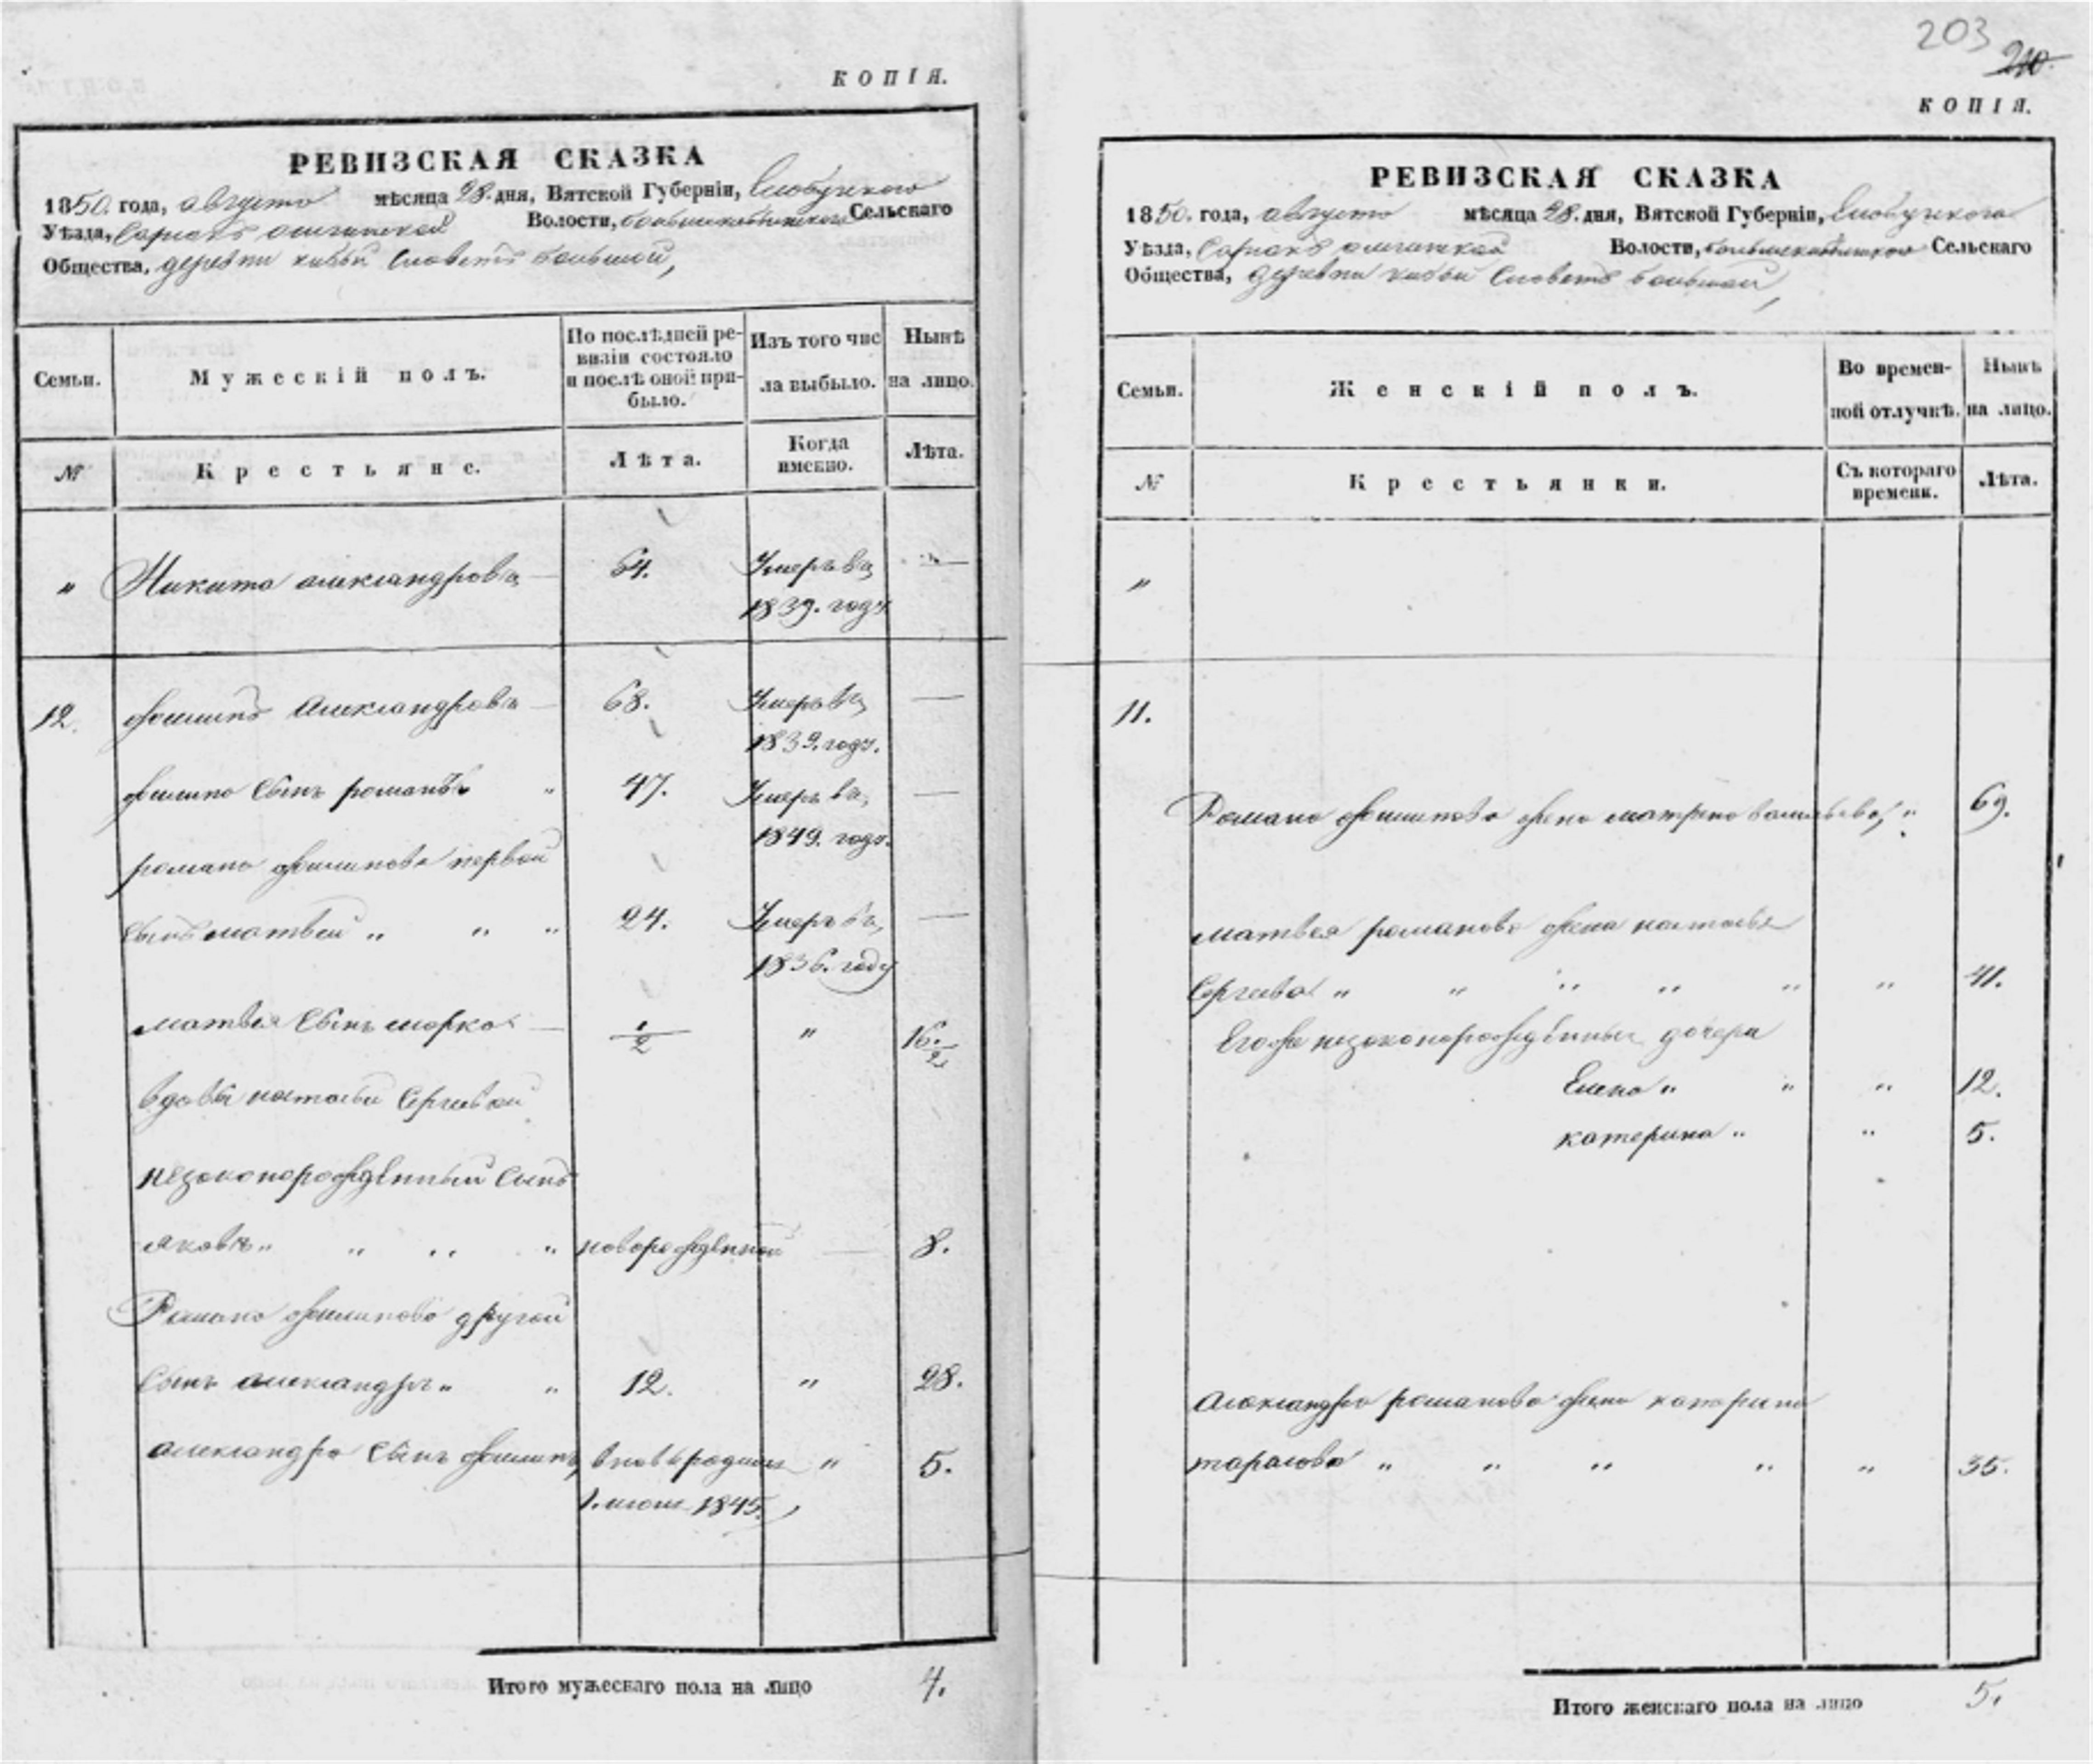 КОПІЯ.
РЕВИЗСКАЯ СКАЗКА
1850. года, августа мѣсяца 28. дня, Вятской Губерніи, Слобуцкого
Уѣзда, Волости, Сельскаго
Общества, деревни большой,
Семьи.
Мужескій полъ.
По послѣдней ре-
визіи состояло
и послѣ оной при-
было.
Изъ того чис
ла выбыло.
Нынѣ
на лицо.
№
Крестьяне.
Лѣта.
Когда
именно.
Лѣта.
" Никита александровъ 64. Умеръ въ —
1839. году
12. Филипъ Александровъ 68. Умеръ въ —
1839. году.
филипа Сынъ романъ " 47. Умеръ въ —
1849. году.
романа Филипова первой
Сынъ матвей " " " 24. Умеръ въ —
1836. году
матвея Сынъ марко — 1/2 " 16. 1/2
вдовы натальи Сергиевой
незаконорожденный Сынъ
яковъ " " " " новорожденной — 8.
Романа филипова другой
Сынъ александръ " " 12. " 28.
александра Сынъ филипъ, вновь " 5.
1. 1845.
Итого мужескаго пола на лицо 4.
203
210.
КОПІЯ.
РЕВИЗСКАЯ СКАЗКА
1850. года, августа мѣсяца 28. дня, Вятской Губерніи, Слобуцкого
Уѣзда, Волости, Сельскаго
Общества, деревни большой,
Семьи.
Женскій полъ.
Во времен-
ной отлучкѣ.
Нынѣ
на лицо.
№
Крестьянки.
Съ котораго
времени.
Лѣта.
"
11.
Романа Филипова жена матрена васильева, " 69.
матвея романова жена наталья
Сергиева " " " " " " 41.
Его же незаконорожденныя дочери
Елена " " " 12.
катерина " " 5.
Александра романова жена катерина
тарасова " " " " " 35.
Итого женскаго пола на лицо 5.